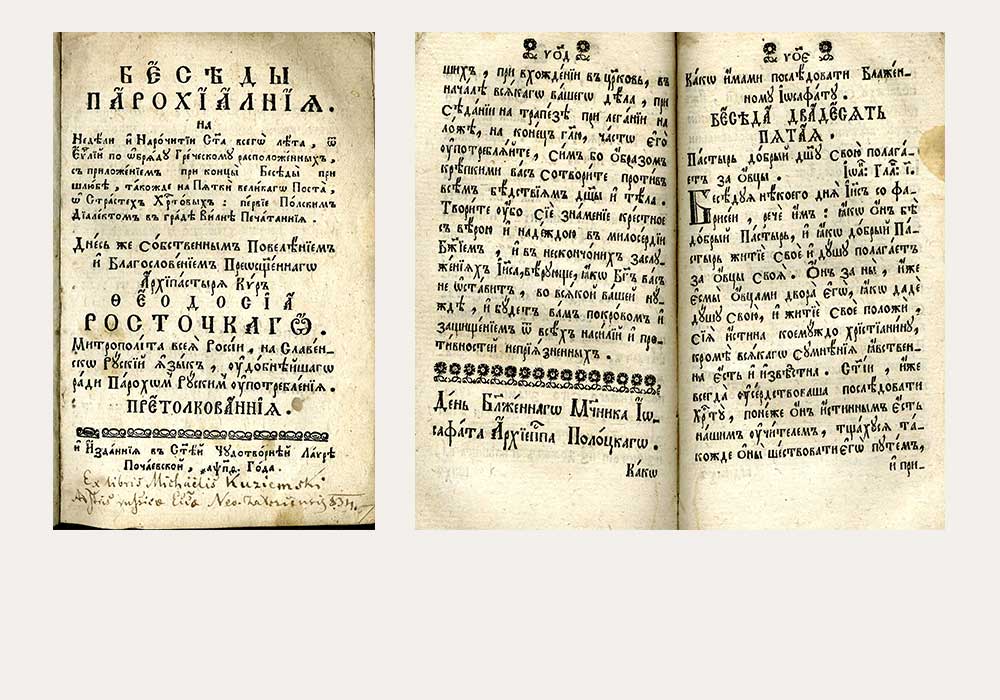 БЕ́СѢДЫ
ПА́РОХЇА́ЛНЇѦ.
на
Недѣ́ли и҆ На́рочїтїи Ст҃а всегѡ̀ лѣ́та, ѿ
Еѵⷢ҇лїй по ѡ҆брѧ́ду Гре́ческому расположе́нныхъ,
съ приложе́нїемъ при концы̀ Бесѣ́ды при
шлю́бѣ, та́кожде на Пѧткѝ вели́кагѡ По́ста,
ѡ҆ Стра́стехъ Хр҇то́выхъ : пе́рвїе По́лскимъ
Дїѧле́ктомъ въ гра́дѣ Ви́лнѣ Печа́таннїѧ.
Дне́сь же Со́бственнымъ Повелѣ́нїемъ
и҆ Благослове́нїемъ Преѡсщ҃е́ннагѡ
А҆рхїпа́стырѧ Ку́ръ
ѲЕѠ́ДОСЇѦ
РО́СТОЧКАГѠ.
Митрополі́та всеѧ̀ Россі́и, на Славе́н-
скѡ Ру́скїй ѧ҆зы́къ, оу҆до́бнѣйшагѡ
ра́ди Па́рохѡмъ Ру́скимъ оу҆потребле́нїѧ.
ПРЕТОЛКОВА́ННЇѦ.
и҆ И҆зда́ннїѧ въ Ст҃е́й Чудотво́рнѣй Ла́врѣ
Поча́евской, ҂аѱп҃ѳ. Го́да.
Ex libris Michaelis Kuziemski
ѵ҃ѻд
шихъ, при вхожде́нїи въ цр҃ковь, въ
нача́лѣ всѧ́кагѡ ва́шегѡ дѣ́ла, при
сѣда́нїи на трапе́зѣ при лега́нїи на
ло́жѣ, на коне́цъ гл҃ю, ча́стѡ є҆гѡ̀
оу҆потреблѧ́йте, си́мъ бо ѻ҆́бразомъ
крѣ́пкими ва́съ сотвори́те проти́въ
всѣ́мъ бѣ́дствїѧмъ дш҃ы̀ и҆ тѣ́ла.
Твори́те оу҆́бо сїѐ зна́менїе кре́стное
съ вѣ́рою и҆ наде́ждою въ милосе́рдїи
Бж҃їемъ, и҆ въ несконо́чныхъ заслу-
же́нїѧхъ І҆и҃са, вѣ́рующе, ꙗ҆́кѡ Бг҃ъ ва́съ
не ѡ҆ста́витъ, во всѧ́кой ва́шей ну́-
ждѣ̀, и҆ бу́детъ ва́мъ покро́вомъ и҆
защище́нїемъ ѿ всѣ́хъ наси́лїй и҆ про-
ти́вностей непрїѧ́зненныхъ.
Де́нь Бл҃же́ннагѡ Мч҃ника І҆ѡ-
сафа́та А҆рхїепⷭ҇па По́лоцкагѡ.
Ка́кѡ
ѵ҃ѻе
Ка́кѡ и҆́мами послѣ́довати Блаже́н-
ному І҆ѡсафа́ту.
БЕСѢ́ДА ДВА́ДЕСѦТЬ
ПѦ́ТАѦ.
Па́стырь до́брый дш҃у свою̀ полага́-
етъ за ѻ҆вцы̀. І҆ѡа҃: Гла҃: і҃.
Бесѣ́дуѧ нѣ́коего днѧ̀ І҆и҃съ со фа-
рїсе́и, речѐ и҆̀мъ : ꙗ҆́кѡ Ѻ҆́нъ бѣ̀
до́брый Па́стырь, и҆ ꙗ҆́кѡ до́брый Па́-
стырь житїѐ своѐ и҆ ду́шу полага́етъ
за ѻ҆вцы̀ своѧ̀. Ѻ҆́нъ за ны̀, и҆́же
є҆смы̀ ѻ҆вца́ми двора̀ є҆гѡ̀, ꙗ҆́кѡ дадѐ
ду́шу свою̀, и҆ житїѐ своѐ положѝ,
сїѧ̀ и҆́стина коему́ждо хрїстїани́ну,
кромѣ̀ всѧ́кагѡ сумнѣ́нїѧ ꙗ҆́вствен-
на є҆́сть и҆ и҆звѣ́стна. Ст҃і́и, и҆́же
всегда̀ оу҆се́рдствоваша послѣ́довати
Хр҇ту̀, поне́же ѻ҆́нъ и҆́стиннымъ є҆́сть
на́шимъ оу҆чи́телемъ, тща́хусѧ та́-
кожде ѻ҆ны̀ ше́ствовати є҆гѡ̀ путе́мъ,
и҆ при-